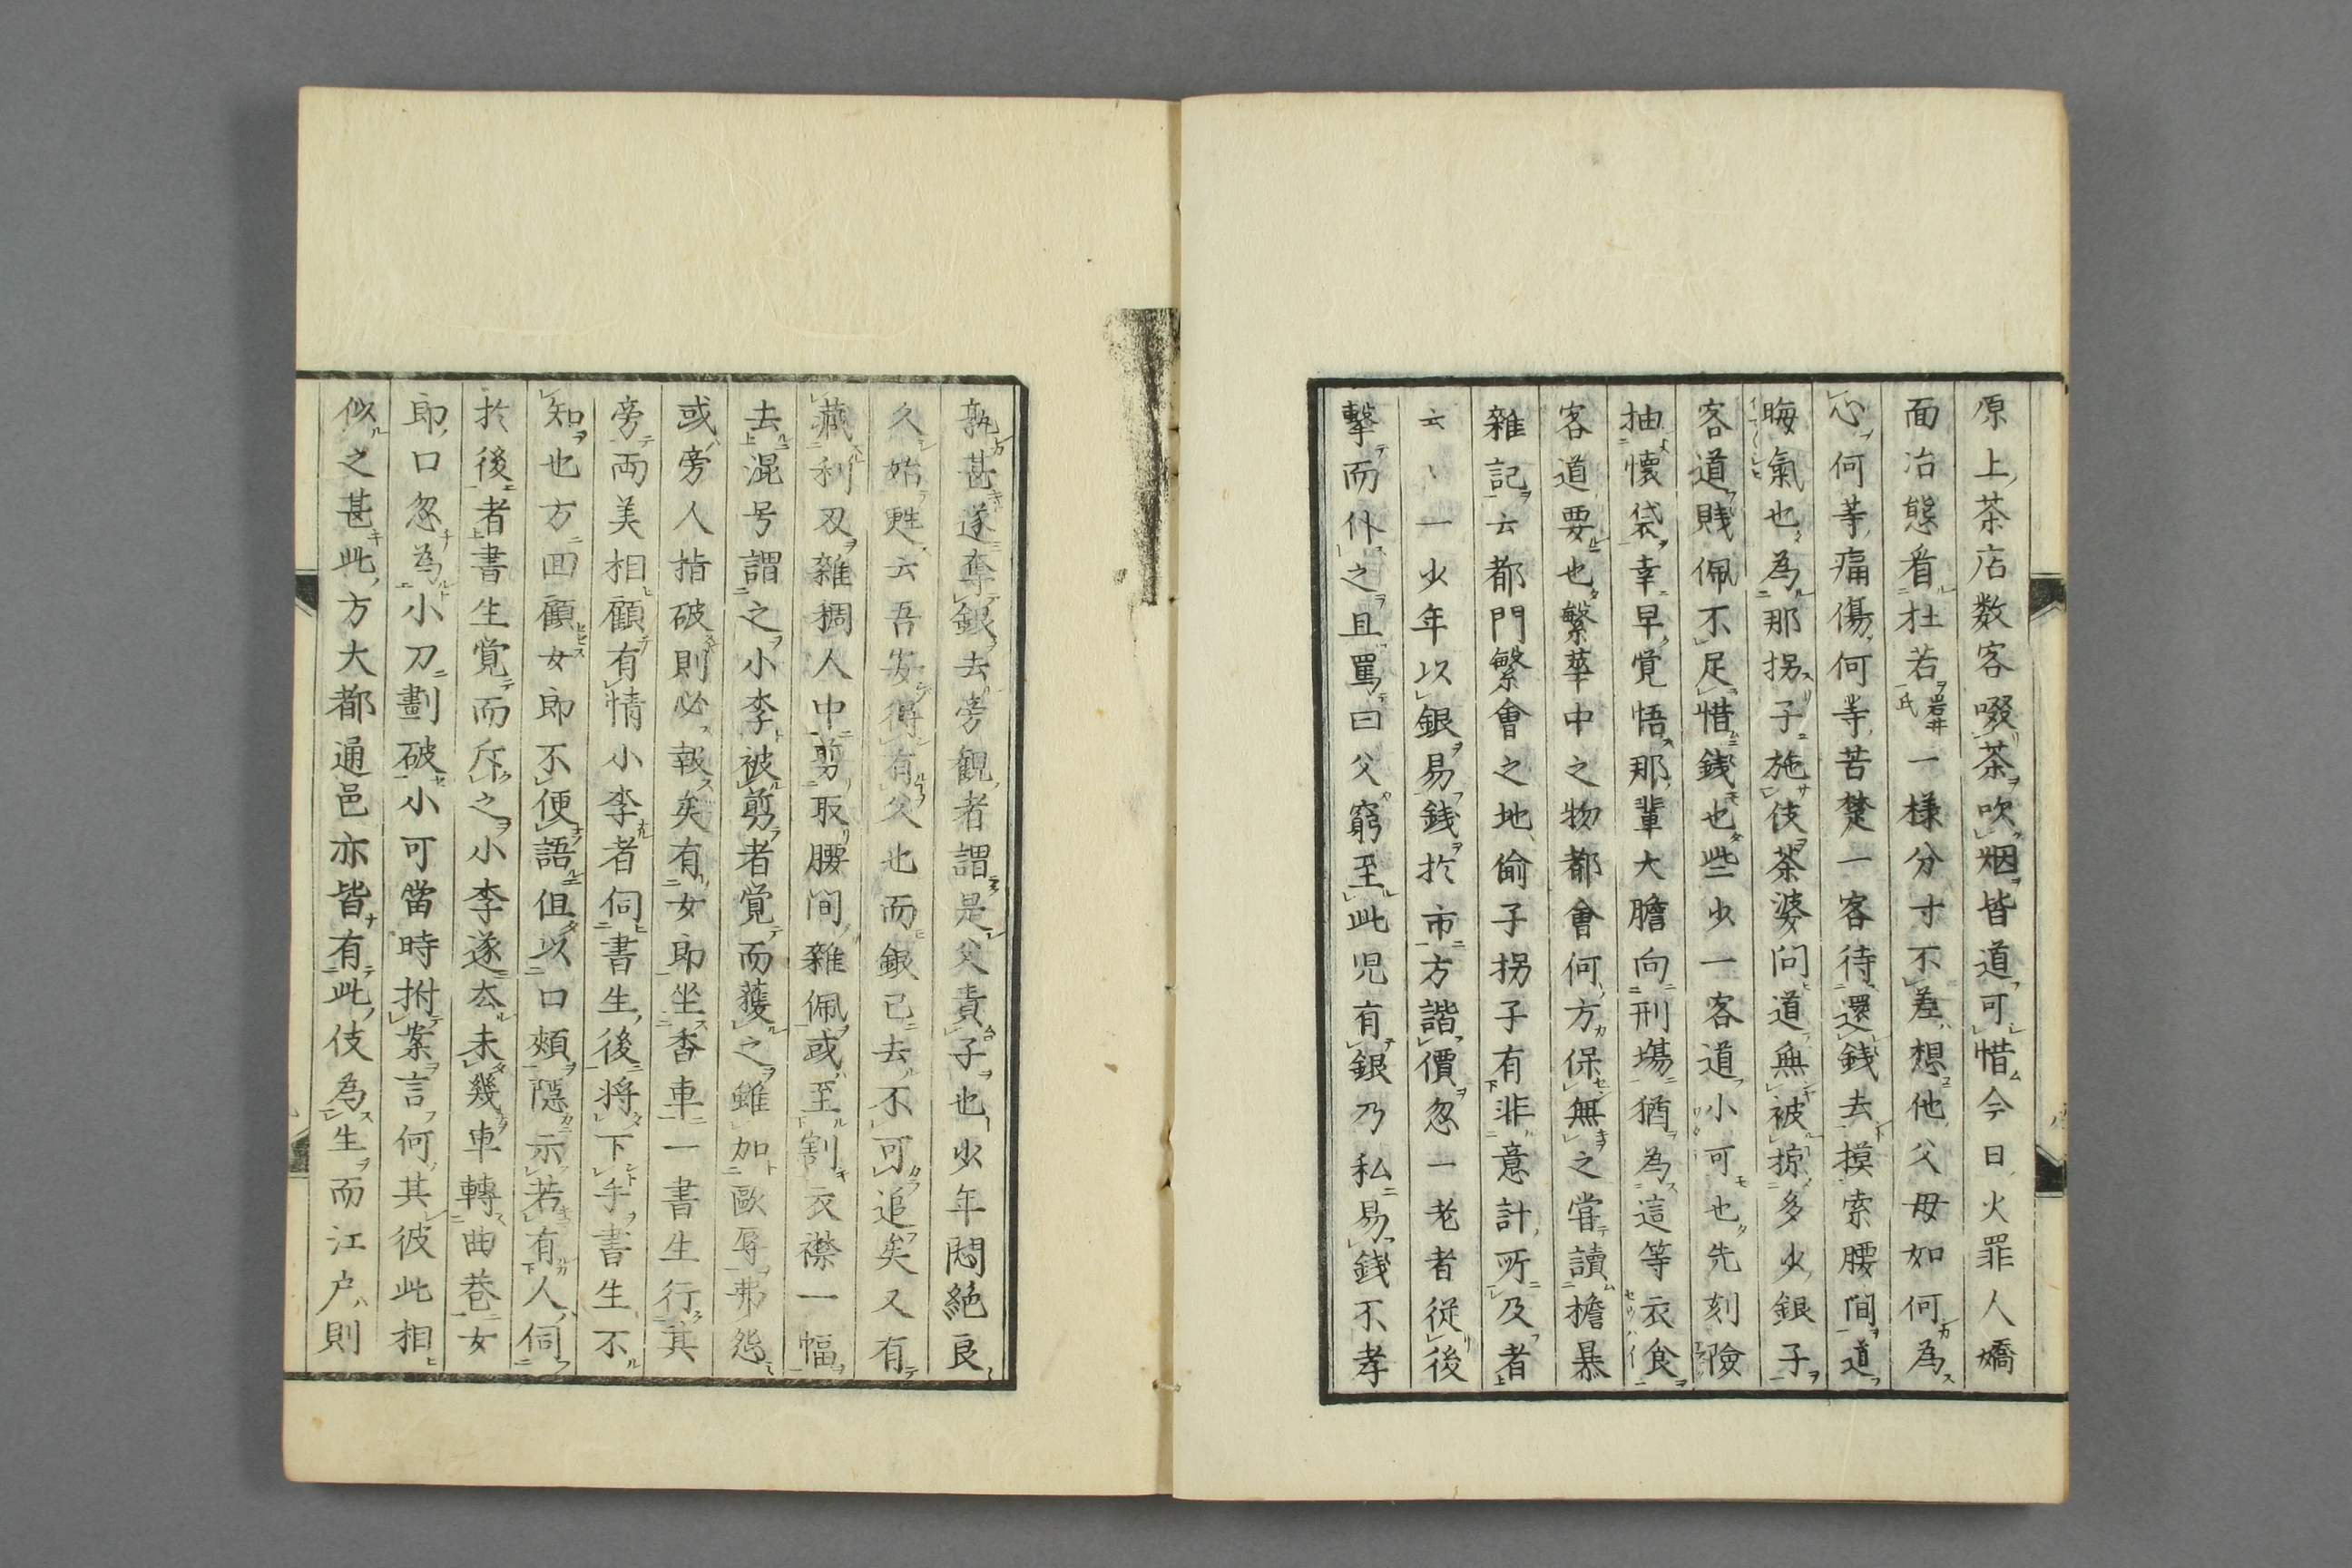 原上茶店数客啜茶吹烟皆道可惜今日火罪人嬌
面冶態看杜若岩井氏一様分寸不差想他父母如何為
心何等痛傷何等苦楚一客待還錢去摸索腰間道
晦氣也為那拐子施伎茶婆問道無被掠多少銀子
客道賎佩不足惜錢也些少一客道小可也先刻険
抽懐袋幸早覚悟那輩大膽向刑塲猶為這等衣食
客道要也繁華中之物都會何方保無之嘗讀檐暴
雜記云都門繁會之地偷子拐子有非意計所及者
云々一少年以銀易錢於市方諧價忽一老者従後
撃而仆之且罵曰父窮至此児有銀乃私易錢不孝
孰甚遂奪銀去旁観者謂是父責子也少年悶絶良
久始甦云吾安得有父也而銀已去不可追矣又有
藏利刃雜稠人中剪取腰間雜佩或至割衣襟一幅
去混号謂之小李被剪者覚而獲之雖加歐辱弗怨
或旁人指破則必報矣有女郎坐香車一書生行其
旁両美相顧有情小李者伺書生後将下手書生不
知也方回顧女郎不便語但以口頰隱示若有人伺
於後者書生覚而斥之小李遂厺未幾車轉曲巷女
郎口忽為小刀劃破小可當時拊案言何其彼此相
似之甚此方大都通邑亦皆有此伎為生而江户則